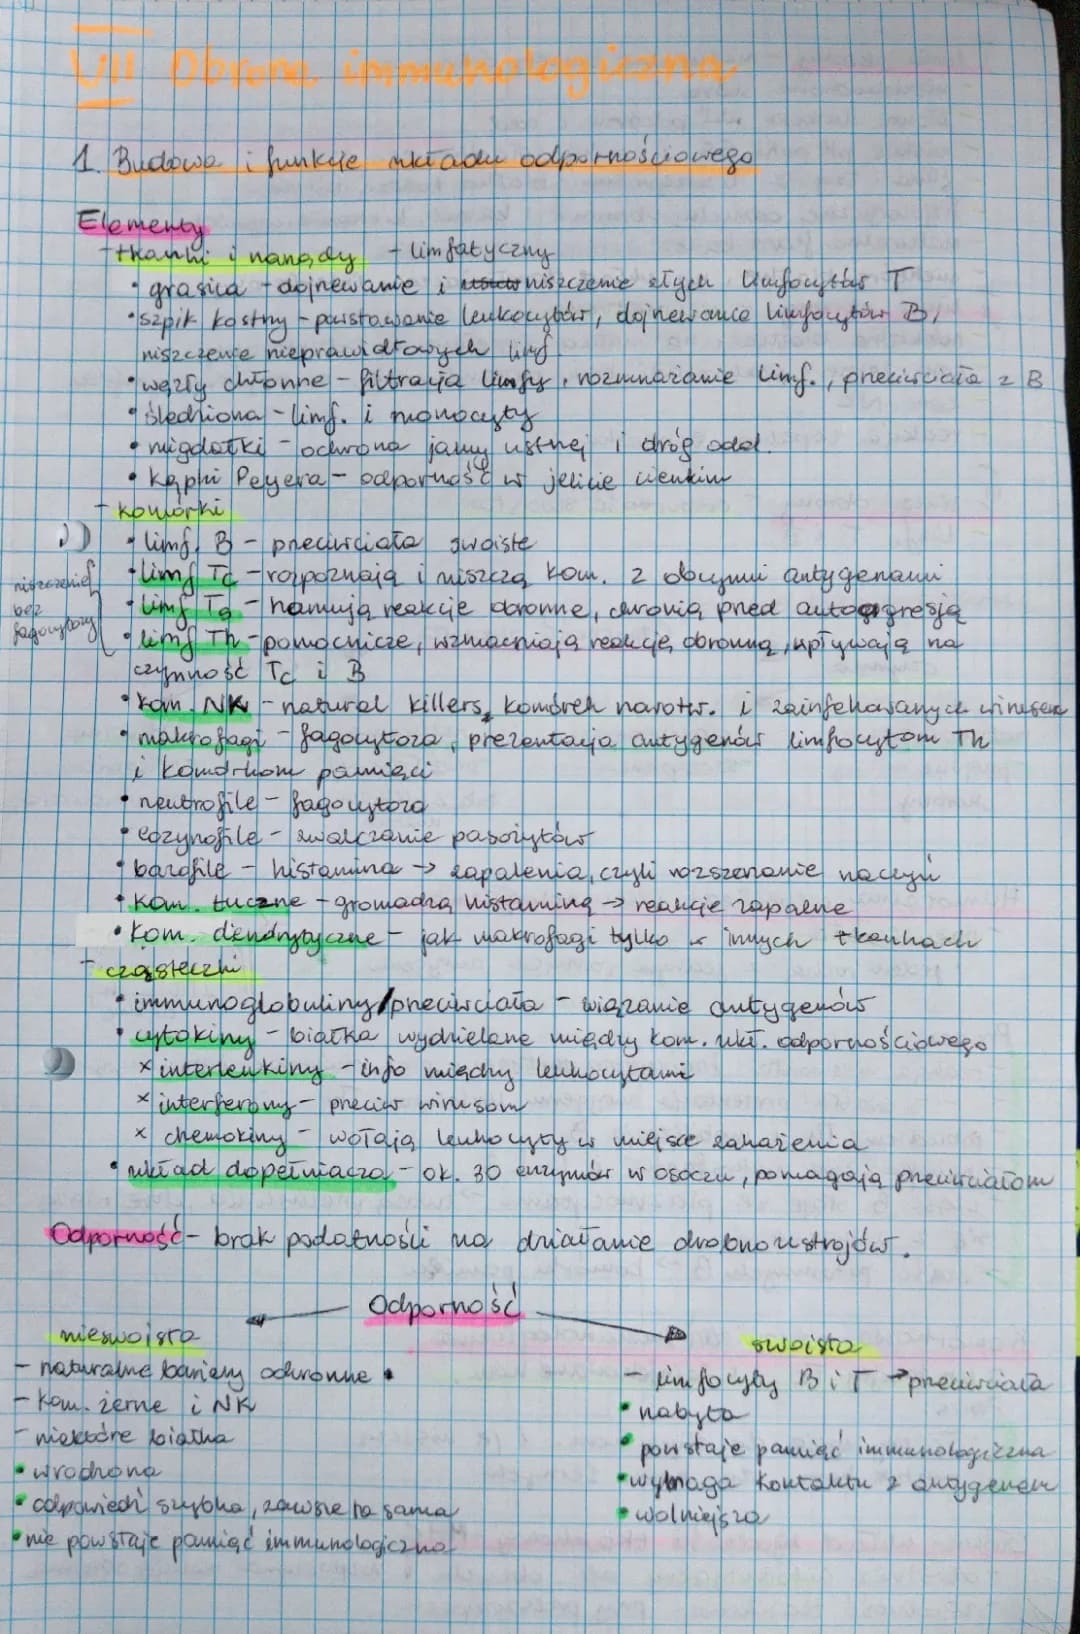 VII Obrona immunologiczna
1. Budowa i funkcje układu odpornościowego
Elementy
- tkanki i narządy - limfatyczny
• grasica - dojrzewanie i niszczenie złych limfocytów T
• szpik kostny - powstawanie leukocytów, dojrzewanie limfocytów B,
niszczenie nieprawidłowych limf
• węzły chłonne - filtracja limfy, rozmnażanie limf., przeciwciała z B
• śledziona - limf. i monocyty
• migdałki - ochrona jamy ustnej i dróg odd.
• kępki Peyera - odporność w jelicie cienkim
- komórki
• limf. B - przeciwciała swoiste
• limf Tc - rozpoznają i niszczą kom. z obcymi antygenami
niszczenie bez fagocytozy
• limf Ts - hamują reakcje obronne, chronią przed autoagresją
• limf Th - pomocnicze, wzmacniają reakcję obronną, wpływają na
czynność Tc i B
• kom. NK - natural killers, komórek nowotw. i zainfekowanych wirusem
• makrofagi - fagocytoza, prezentacja antygenów limfocytom Th
i komórkom pamięci
• neutrofile - fagocytoza
• eozynofile - zwalczanie pasożytów
• bazofile - histamina → zapalenia, czyli rozszerzanie naczyń
• kom. tuczne - gromadzą histaminę → reakcje zapalne
• kom. dendrytyczne - jak makrofagi tylko w innych tkankach
- cząsteczki
• immunoglobuliny/przeciwciała - wiązanie antygenów
• cytokiny - białka wydzielane między kom. ukł. odpornościowego
x interleukiny - info między leukocytami
x interferony - przeciw wirusom
x chemokiny - wołają leukocyty w miejsce zakażenia
• układ dopełniacza - ok. 30 enzymów w osoczu, pomagają przeciwciałom
Odporność - brak podatności na działanie drobnoustrojów.
Odporność
nieswoista
- naturalne bariery ochronne •
- kom. żerne i NK
- niektóre białka
• wrodzona
• odpowiedź szybka, zawsze ta sama
• nie powstaje pamięć immunologiczna
swoista
- limfocyty B i T → przeciwciała
• nabyta
• powstaje pamięć immunologiczna
• wymaga kontaktu z antygenem
• wolniejsza